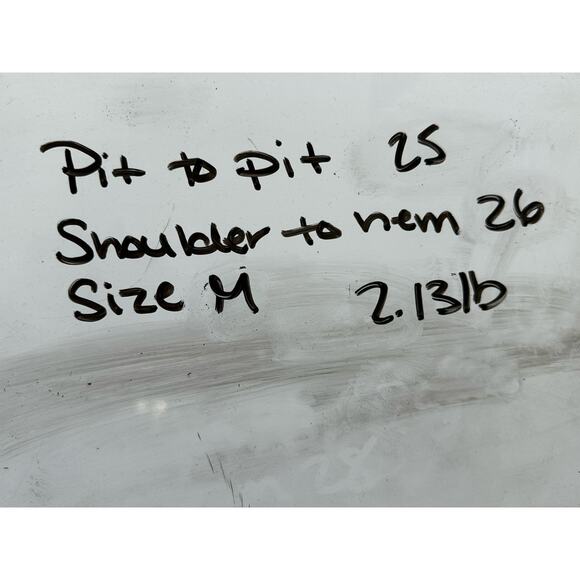 Pit to pit 25
Shoulder to hem 26
Size M 2.13lb